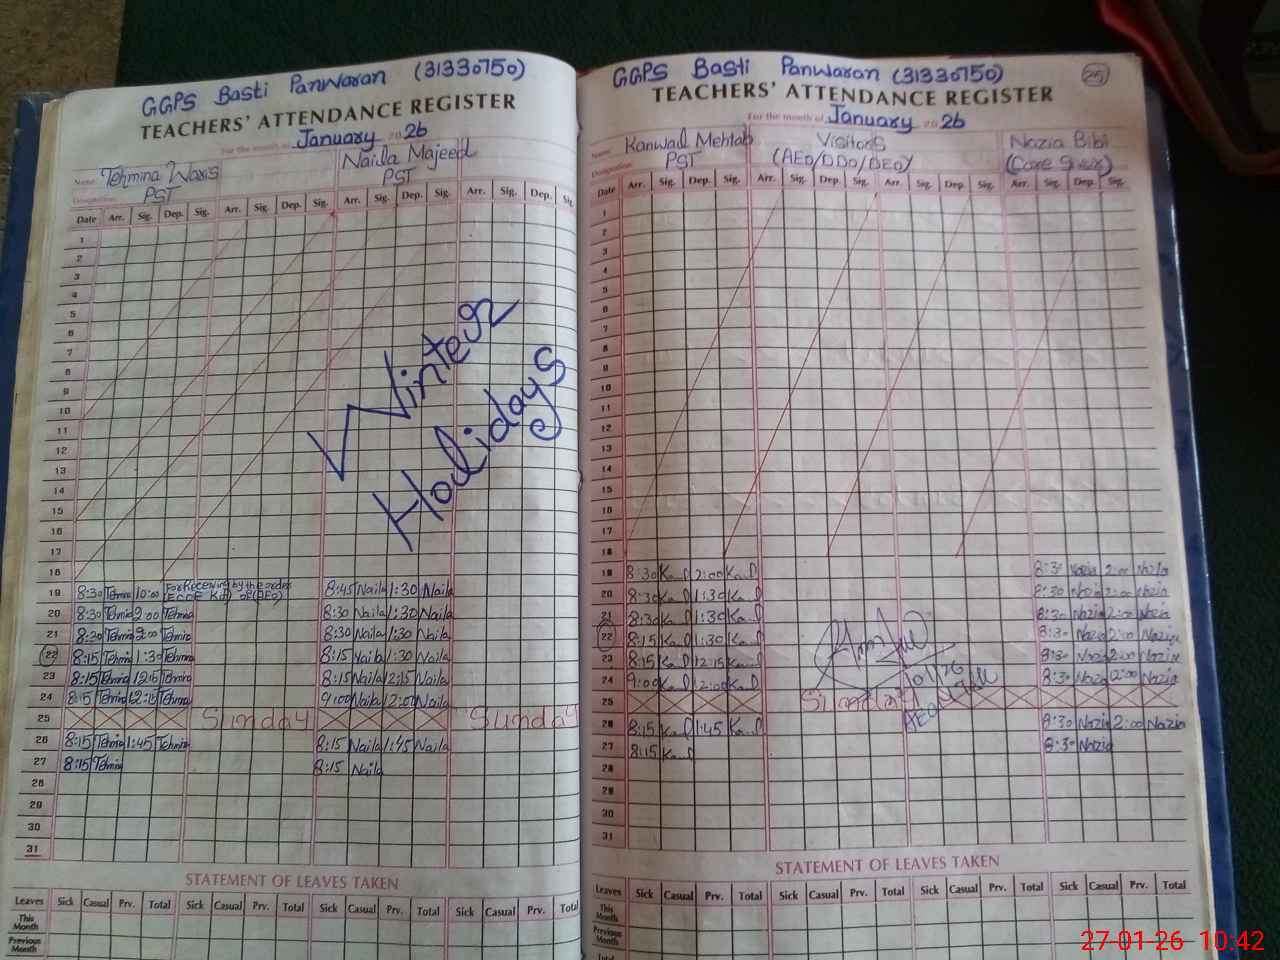 GGPS Basti Panwaran (31330750)
TEACHERS' ATTENDANCE REGISTER
For the month of January 2026
Name Tehmina Waris Naila Majeed
Designation PST PST
Date Arr. Sig. Dep. Sig. Arr. Sig. Dep. Sig. Arr. Sig. Dep. Sig. Arr. Sig. Dep. Sig.
1
2
3
4
5
6
7
8
9
10
11
12
13
14
15
16
17
18
Winter
Holidays
19 8:30 Tehmina 10:00 For Receiving by the order 8:45 Naila 1:30 Naila
20 8:30 Tehmina 2:00 Tehmina 8:30 Naila 1:30 Naila
21 8:30 Tehmina Tehmina 8:30 Naila 1:30 Naila
22 8:15 Tehmina 1:30 Tehmina 8:15 Naila 1:30 Naila
23 8:15 Tehmina 12:15 Tehmina 8:15 Naila 12:15 Naila
24 8:15 Tehmina 12:15 Tehmina 9:00 Naila 12:00 Naila
25 Sunday Sunday
26 8:15 Tehmina 1:45 Tehmina 8:15 Naila 1:45 Naila
27 8:15 Tehmina 8:15 Naila
28
29
30
31
STATEMENT OF LEAVES TAKEN
Leaves Sick Casual Prv. Total Sick Casual Prv. Total Sick Casual Prv. Total Sick Casual Prv. Total
This Month
Previous Month
GGPS Basti Panwaran (31330750) 25
TEACHERS' ATTENDANCE REGISTER
For the month of January 2026
Name Kanwal Mehtab Visitors Nazia Bibi
Designation PST (AEO/DDO/DEO) (Care Giver)
Date Arr. Sig. Dep. Sig. Arr. Sig. Dep. Sig. Arr. Sig. Dep. Sig. Arr. Sig. Dep. Sig.
1
2
3
4
5
6
7
8
9
10
11
12
13
14
15
16
17
18
19 8:30 2:00 8:30 Nazia 2:00 Nazia
20 8:30 1:30 8:30 Nazia 2:00 Nazia
21 8:30 1:30 8:30 Nazia 2:00 Nazia
22 8:15 1:30 8:30 Nazia 2:00 Nazia
23 8:15 12:15 8:30 Nazia 2:00 Nazia
24 9:00 12:00 8:30 Nazia 2:00 Nazia
25 Sunday
AEO
26 8:15 1:45 8:30 Nazia 2:00 Nazia
27 8:15 8:30 Nazia
28
29
30
31
STATEMENT OF LEAVES TAKEN
Leaves Sick Casual Prv. Total Sick Casual Prv. Total Sick Casual Prv. Total Sick Casual Prv. Total
This Month
Previous Month
27-01-26 10:42